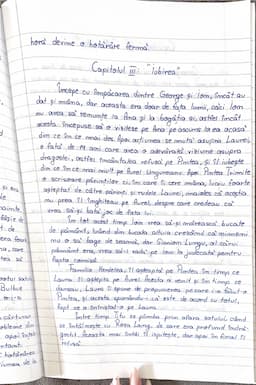 horă devine o hotărâre fermă
Capitolul III: "Iubirea"
Începe cu împăcarea dintre George și Ion, încât au
dat și mâna, dar aceasta era doar de fața lumii, căci Ion
nu avea să renunțe la Ana și la bogăția ei, astfel încât
acesta începuse să o viziteze pe Ana pe ascuns la ea acasă
din ce în ce mai des. Apoi acțiunea se mută asupra Laurei,
o fată de 19 ani care avea o adevărată viziune asupra
dragostei, astfel înaintarea refuzul pe Pintea, și îl iubește
din ce în ce mai mult pe Aurel Ungureanu. Apoi Pintea îi trimite
o scrisoare părinților cu în care îi cere mâna, lucru foarte
așteptat de către părinți și evitat Laurei, imediat că aceștia
nu prea îl înghițeau pe Aurel despre care credeau că
vrea să-și bată joc de fata lor.
În tot acest timp Ion vrea să-și mărească bucata
de pământ, luând din bucata altuia crezând că nimeni
nu o să bage de seamă, dar Simion Lungu, al cărui
pământul era, vrea să-l vadă pe Ion la judecată pentru
fapta comisă.
Familia Herdelea îl așteptă pe Pintea în timp ce
Laura îl aștepta pe Aurel. Acesta a venit și în timp ce
dansau, Laura îi spune de propunerea pe care i-a făcut-o
Pintea, și acesta spunându-i că este de acord cu totul,
fapt ce a întristat-o pe Laura.
Între timp Titu se plimba prin afara satului când
se întâlnește cu Roza Lang, de care era profund îndră-
gostit. Aceasta mai întâi îl ispitește, dar apoi în final îl